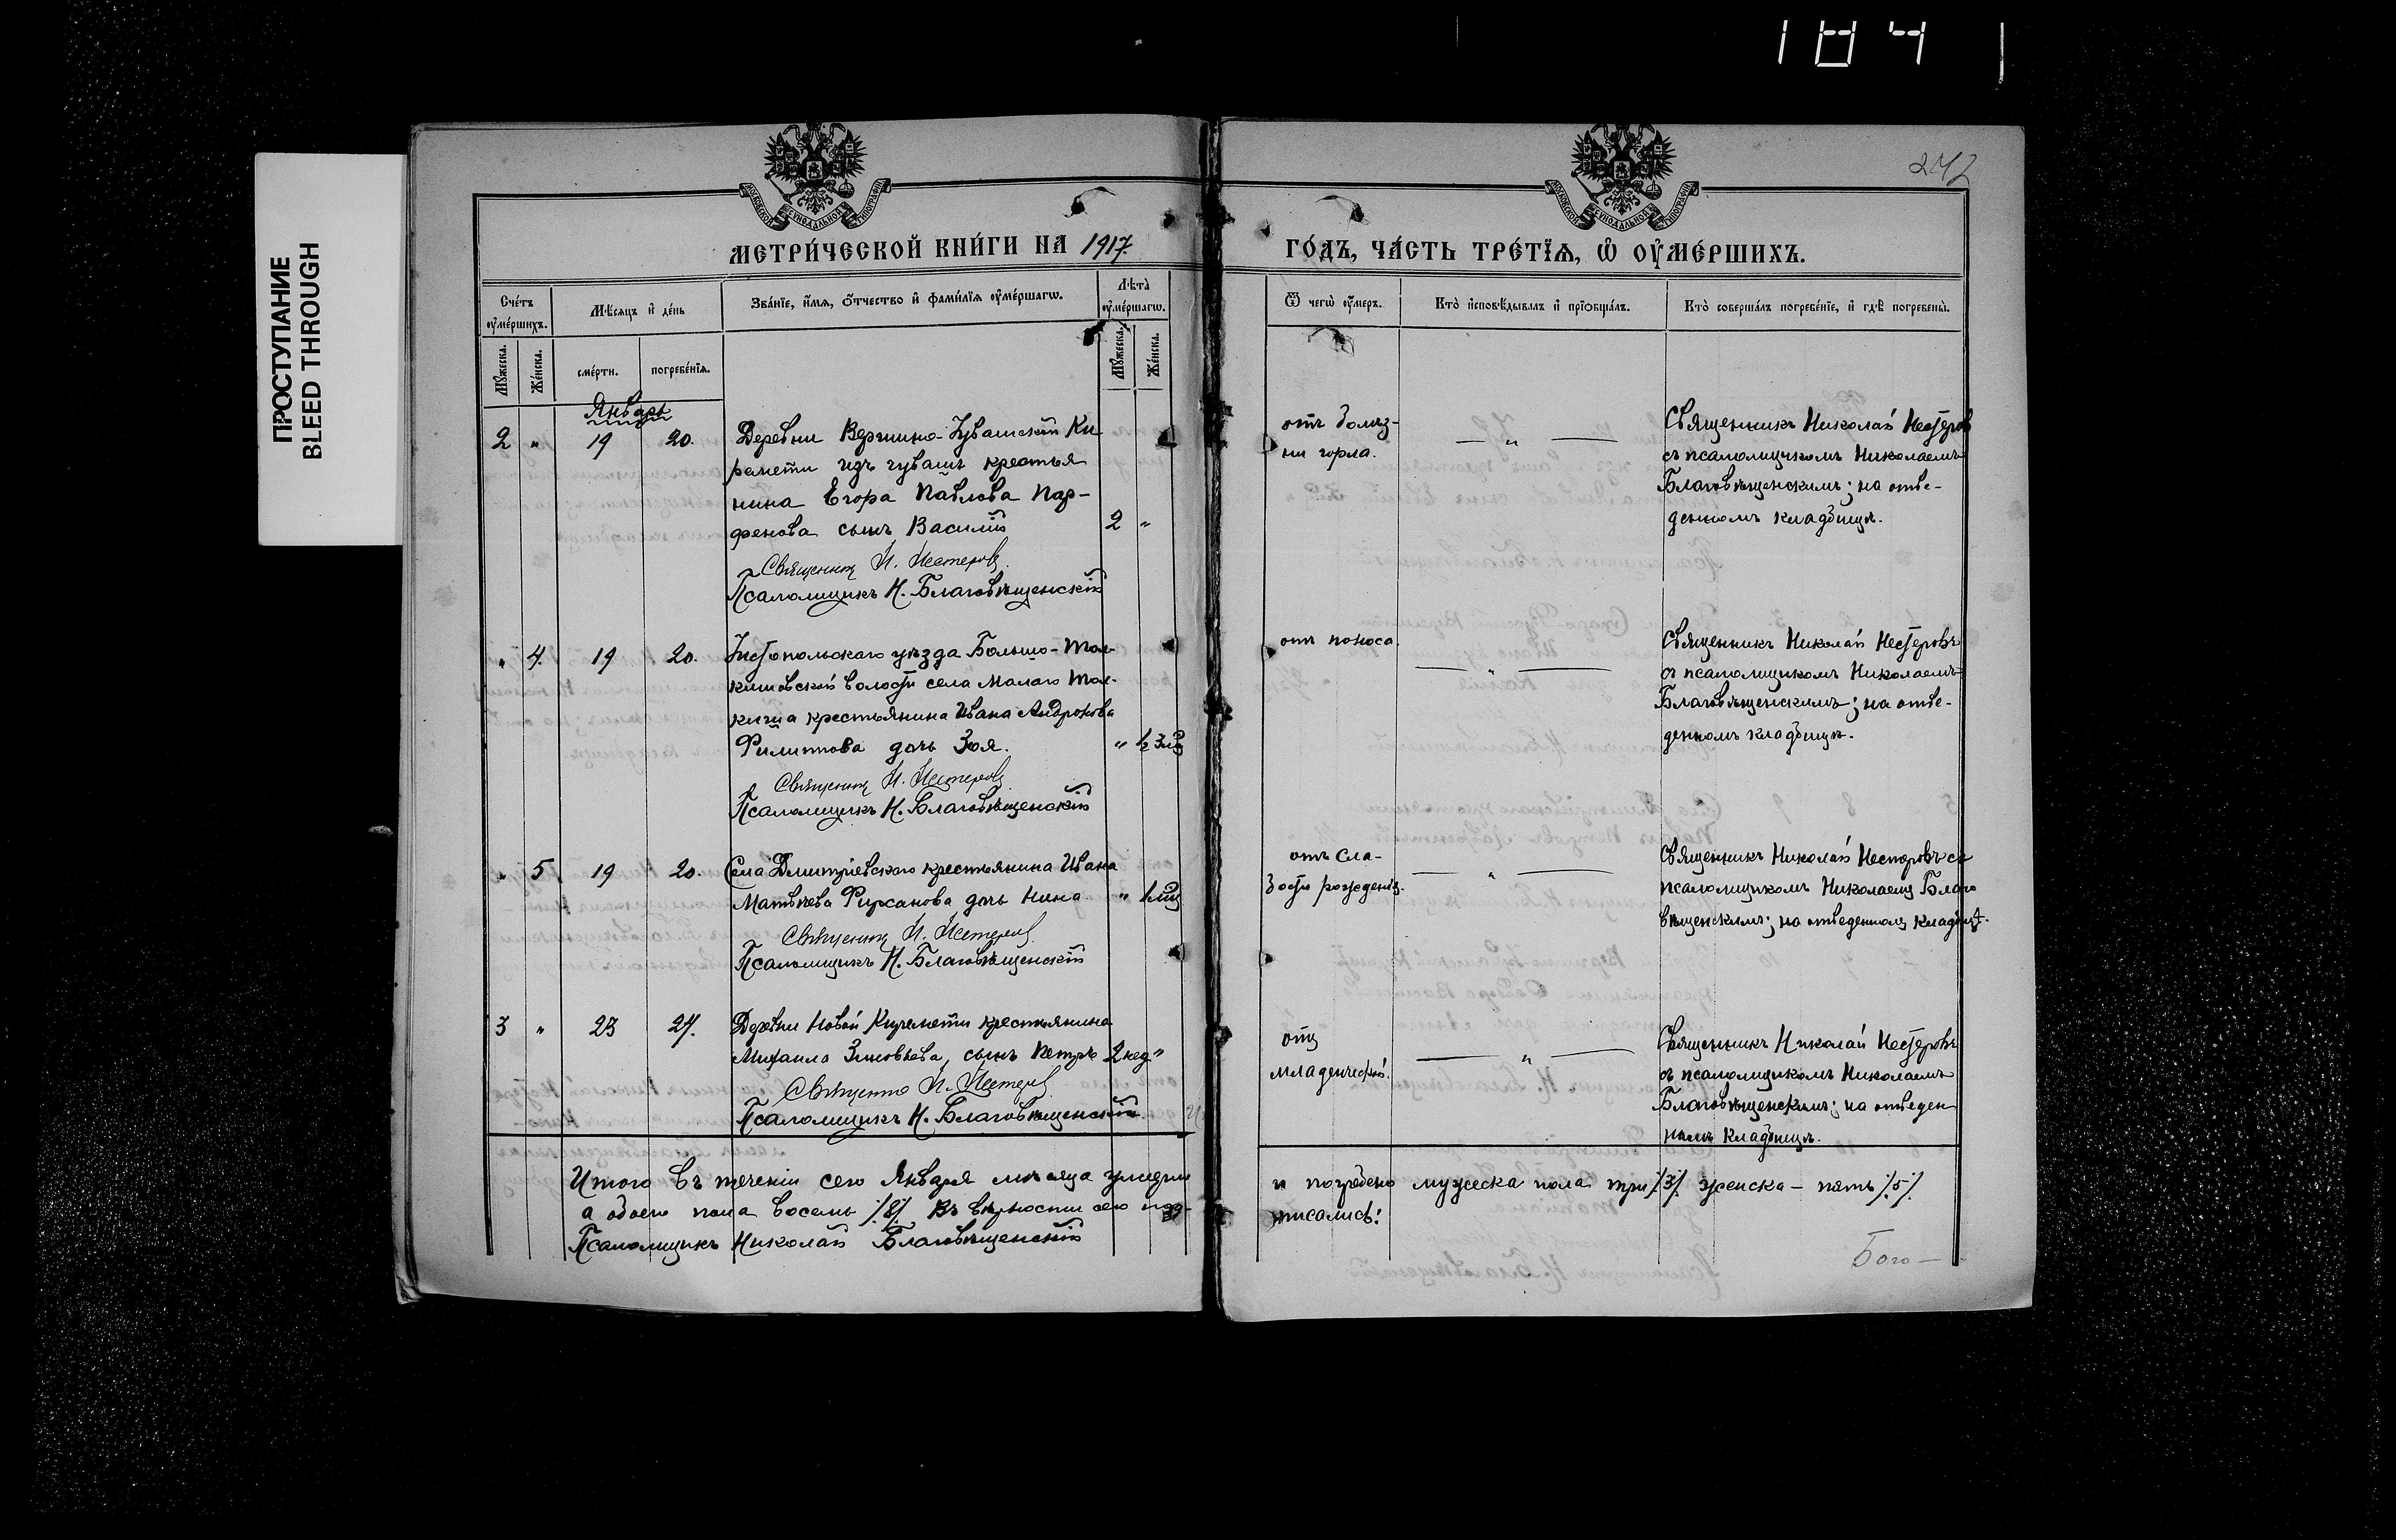 1841
ПРОСТУПАНИЕ
BLEED THROUGH
242
МОСКОВСКОЙ СѴНОДАЛЬНОЙ ТИПОГРАФІИ
МОСКОВСКОЙ СѴНОДАЛЬНОЙ ТИПОГРАФІИ
МЕТРИ́ЧЕСКОЙ КНИ́ГИ НА 1917
ГО́ДЪ, ЧА́СТЬ ТРЕ́ТЇѦ, Ѡ҆ ОУ҆МЕ́РШИХЪ.
Сче́тъ оу҆ме́ршихъ.
Мѣ́сѧцъ и҆ де́нь
Зва́нїе, и҆́мѧ, ѻ҆́тчество и҆ фамѝлїѧ оу҆ме́ршагѡ.
Лѣ́та оу҆ме́ршагѡ.
Ѿ чегѡ̀ оу҆́меръ.
Кто̀ и҆сповѣ́дывалъ и҆ прїѡбща́лъ.
Кто̀ соверша́лъ погребе́нїе, и҆ гдѣ̀ погребены̀.
Мꙋ́жеска.
Же́нска.
сме́рти.
погребе́нїѧ.
Мꙋ́жеска.
Же́нска.
Январь
2 " 19 20.
Деревни Вершино-Чувашской Ки
ремети изъ чувашъ крестья
нина Егора Павлова Пар-
фенова сынъ Василій
2 "
Священникъ Н. Нестеровъ
Псаломщикъ Н. Благовѣщенскій
отъ болѣз-
ни горла.
— " —
Священникъ Николай Нестеровъ
съ псаломщикомъ Николаемъ
Благовѣщенскимъ; на отве-
денномъ кладбищѣ.
" 4. 19 20.
Чистопольскаго уѣзда Больше-Тол-
кишовской волости села Малаго Тол-
киша крестьянина Ивана Андронова
Филиппова дочь Зоя.
"
Священникъ Н. Нестеровъ
Псаломщикъ Н. Благовѣщенскій
отъ поноса
— " —
Священникъ Николай Нестеровъ
съ псаломщикомъ Николаемъ
Благовѣщенскимъ; на отве-
денномъ кладбищѣ.
" 5 19 20.
Села Дмитріевскаго крестьянина Ивана
Матвѣева Фирсанова дочь Нина
"
Священникъ Н. Нестеровъ
Псаломщикъ Н. Благовѣщенскій
отъ сла-
бости рожденія.
— " —
Священникъ Николай Нестеровъ съ
псаломщикомъ Николаемъ Благо
вѣщенскимъ; на отведенномъ кладбищѣ.
3 " 23 24.
Деревни Новой Киремети крестьянина
Михаила Зиновьева, сынъ Петръ
2 нед "
Священникъ Н. Нестеровъ
Псаломщикъ Н. Благовѣщенскій
отъ
младенческой.
— " —
Священникъ Николай Нестеровъ
съ псаломщикомъ Николаемъ
Благовѣщенскимъ; на отведен
номъ кладбищѣ.
Итого въ теченіи сего Января мѣсяца умерли
и погребено мужеска пола три /3/ женска — пять /5/
а обоего пола восемь /8/ Въ вѣрности сего под-
писались:
Псаломщикъ Николай Благовѣщенскій
Бого—